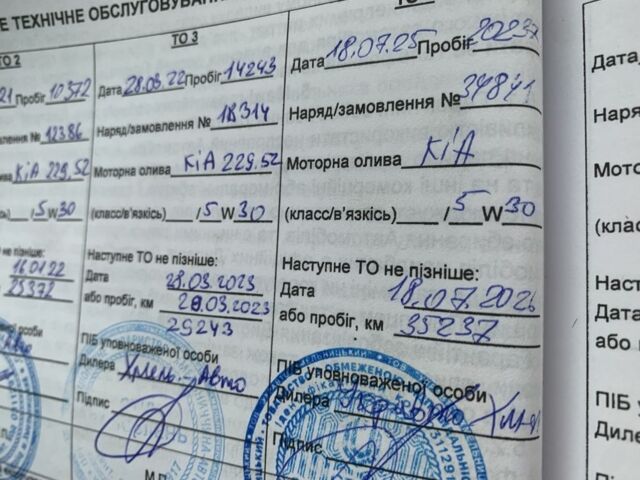 Е ТЕХНІЧНЕ ОБСЛУГОВУВАН
ТО 2
21 Пробіг 10372
лення № 12386
ва KIA 229.52
сть) /5 W 30
о не пізніше:
16.01.22
25372
ої особи
ТО 3
Дата 28.03.22 Пробіг 14243
Наряд/замовлення № 18314
Моторна олива KIA 229.52
(класс/в'язкість) /5 W 30
Наступне ТО не пізніше:
Дата 28.03.2023
або пробіг, км 28.03.2023
29243
ПІБ уповноваженої особи
Дилера Хмель-Авто
Підпис
М.П.
Дата 18.07.25 Пробіг 20237
Наряд/замовлення № 34841
Моторна олива KIA
(класс/в'язкість) /5 W 30
Наступне ТО не пізніше:
Дата 18.07.2026
або пробіг, км 35237
ПІБ уповноваженої особи
Дилера
Підпис
Дата
Наряд
Мото
(клас
Наст
Дата
або
ПІБ
Диле
Під